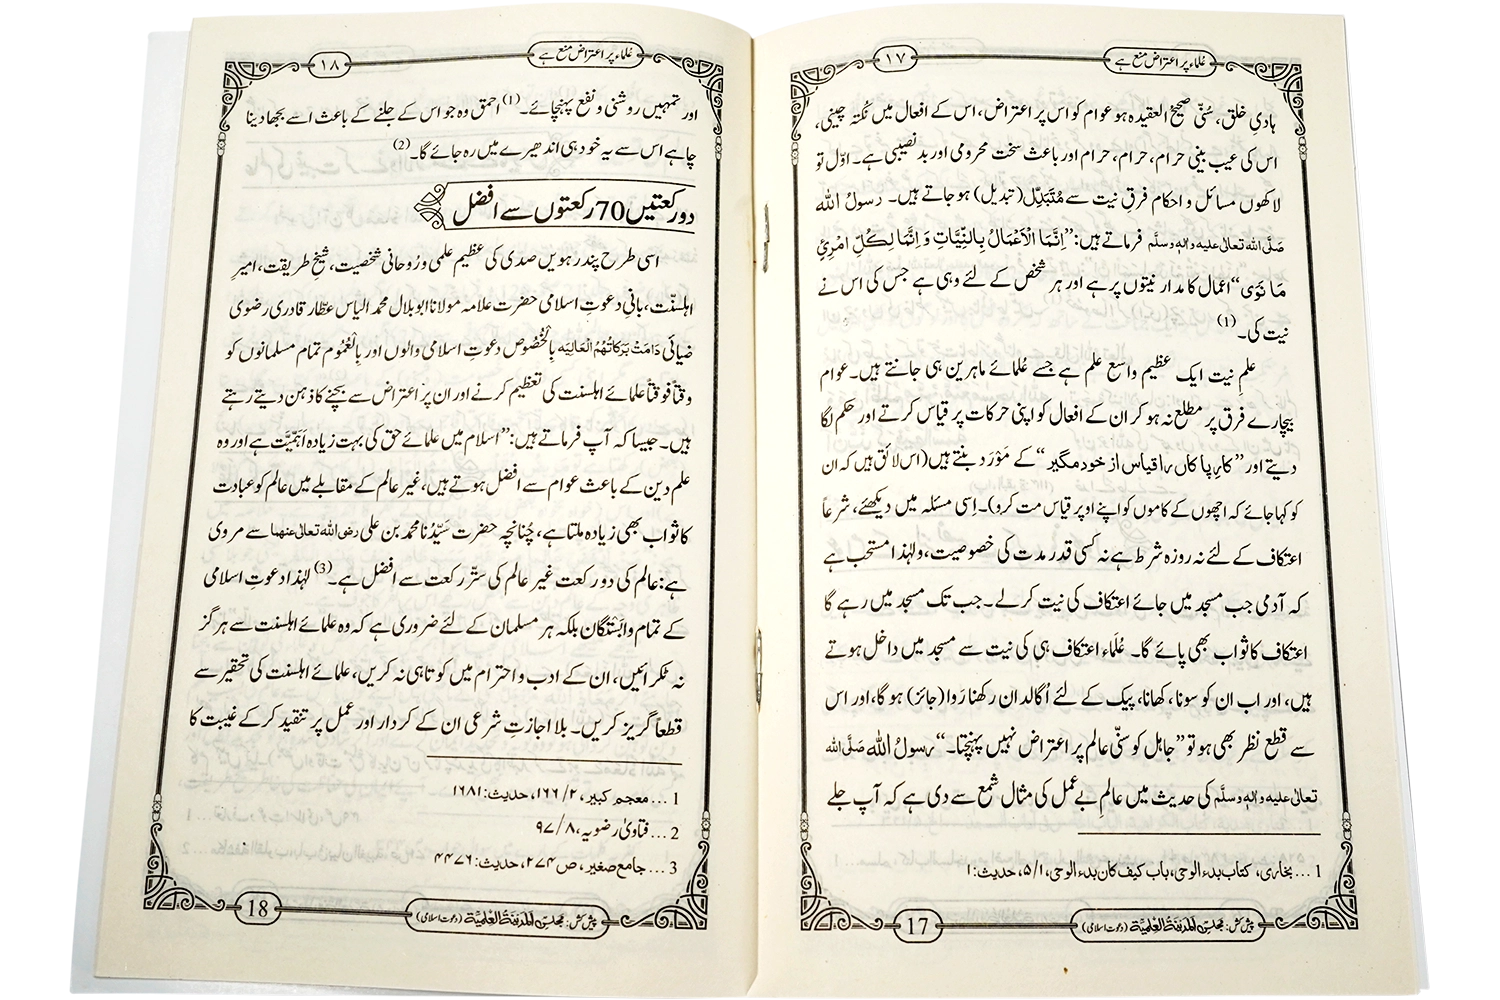 علماء پر اعتراض منع ہے
۱۷
ہادیِ خلق، سُنّی صحیحُ العقیدہ ہو عوام کو اس پر اعتراض، اس کے افعال میں نُکتہ چینی،
اس کی عیب بینی حرام، حرام، حرام اور باعث سخت محرومی اور بدنصیبی ہے۔ اوّل تو
لاکھوں مسائل و احکام فرقِ نیت سے مُتَبَدِّل (تبدیل) ہو جاتے ہیں۔ رسولُ اللہ
صَلَّی اللہ تعالٰی علیہ والہٖ وسلَّم فرماتے ہیں: ”اِنَّمَا الْاَعْمَالُ بِالنِّیَّاتِ وَ اِنَّمَا لِکُلِّ امْرِئٍ
مَا نَوٰی“ اعمال کا مدار نیتوں پر ہے اور ہر شخص کے لئے وہی ہے جس کی اس نے
نیت کی۔(1)
علمِ نیت ایک عظیم واسع علم ہے جسے عُلمائے ماہرین ہی جانتے ہیں۔ عوام
بیچارے فرق پر مطلع نہ ہو کر ان کے افعال کو اپنی حرکات پر قیاس کرتے اور حکم لگا
دیتے اور ”کارِ پاکاں را قیاس از خود مگیر“ کے مَورَد بنتے ہیں (اس لائق ہیں کہ ان
کو کہا جائے کہ اچھوں کے کاموں کو اپنے اوپر قیاس مت کرو)۔ اِسی مسئلہ میں دیکھئے، شرعاً
اعتکاف کے لئے نہ روزہ شرط ہے نہ کسی قدر مدت کی خصوصیت، ولہٰذا مستحب ہے
کہ آدمی جب مسجد میں جائے اعتکاف کی نیت کرلے۔ جب تک مسجد میں رہے گا
اعتکاف کا ثواب بھی پائے گا۔ عُلَماء اعتکاف ہی کی نیت سے مسجد میں داخل ہوتے
ہیں، اور اب ان کو سونا، کھانا، پیک کے لئے اُگالدان رکھنا رَوا (جائز) ہو گا، اور اس
سے قطع نظر بھی ہو تو ”جاہل کو سُنّی عالم پر اعتراض نہیں پہنچتا۔“ رسولُ اللہ صَلَّی اللہ
تعالٰی علیہ والہٖ وسلَّم کی حدیث میں عالمِ بے عمل کی مثال شمع سے دی ہے کہ آپ جلے
1 ... بخاری، کتاب بدء الوحی، باب کیف کان بدء الوحی، ۱/ ۵، حدیث: ۱
پیش کش: مجلس المدینۃ العلمیۃ (دعوت اسلامی)
17
علماء پر اعتراض منع ہے
۱۸
اور تمہیں روشنی و نفع پہنچائے۔(1) احمق وہ جو اس کے جلنے کے باعث اسے بجھا دینا
چاہے اس سے یہ خود ہی اندھیرے میں رہ جائے گا۔(2)
دو رکعتیں 70 رکعتوں سے افضل
اسی طرح پندرہویں صدی کی عظیم علمی و رُوحانی شخصیت، شیخِ طریقت، امیرِ
اہلسنّت، بانیِ دعوتِ اسلامی حضرت علامہ مولانا ابو بلال محمد الیاس عطّار قادری رضوی
ضیائی دَامَتْ بَرَکَاتُہُمُ الْعَالِیَہ بِالْخُصُوص دعوتِ اسلامی والوں اور بِالْعُمُوم تمام مسلمانوں کو
وقتاً فوقتاً علمائے اہلسنت کی تعظیم کرنے اور ان پر اعتراض سے بچنے کا ذہن دیتے رہتے
ہیں۔ جیسا کہ آپ فرماتے ہیں: ”اسلام میں علمائے حق کی بہت زیادہ اَہَمِّیَّت ہے اور وہ
علم دین کے باعث عوام سے افضل ہوتے ہیں، غیر عالم کے مقابلے میں عالم کو عبادت
کا ثواب بھی زیادہ ملتا ہے، چُنانچہ حضرت سَیِّدُنا محمد بن علی رضی اللہ تعالٰی عنہما سے مروی
ہے: عالم کی دو رکعت غیر عالم کی سَتّر رکعت سے افضل ہے۔(3) لہٰذا دعوتِ اسلامی
کے تمام وابَستگان بلکہ ہر مسلمان کے لئے ضروری ہے کہ وہ علمائے اہلسنت سے ہرگز
نہ ٹکرائیں، ان کے ادب و احترام میں کوتاہی نہ کریں، علمائے اہلسنت کی تحقیر سے
قطعاً گریز کریں۔ بلا اجازتِ شرعی ان کے کردار اور عمل پر تنقید کرکے غیبت کا
1 ... معجم کبیر، ۲/ ۱۶۶، حدیث: ۱۶۸۱
2 ... فتاویٰ رضویہ، ۸/ ۹۷
3 ... جامع صغیر، ص ۲۷۴، حدیث: ۴۴۷۶
پیش کش: مجلس المدینۃ العلمیۃ (دعوت اسلامی)
18